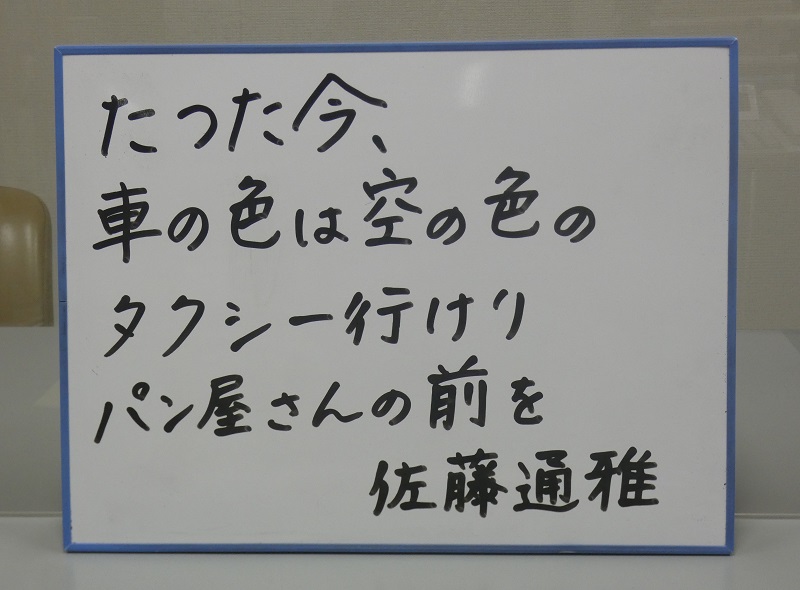 たった今、
車の色は空の色の
タクシー行けり
パン屋さんの前を
佐藤通雅